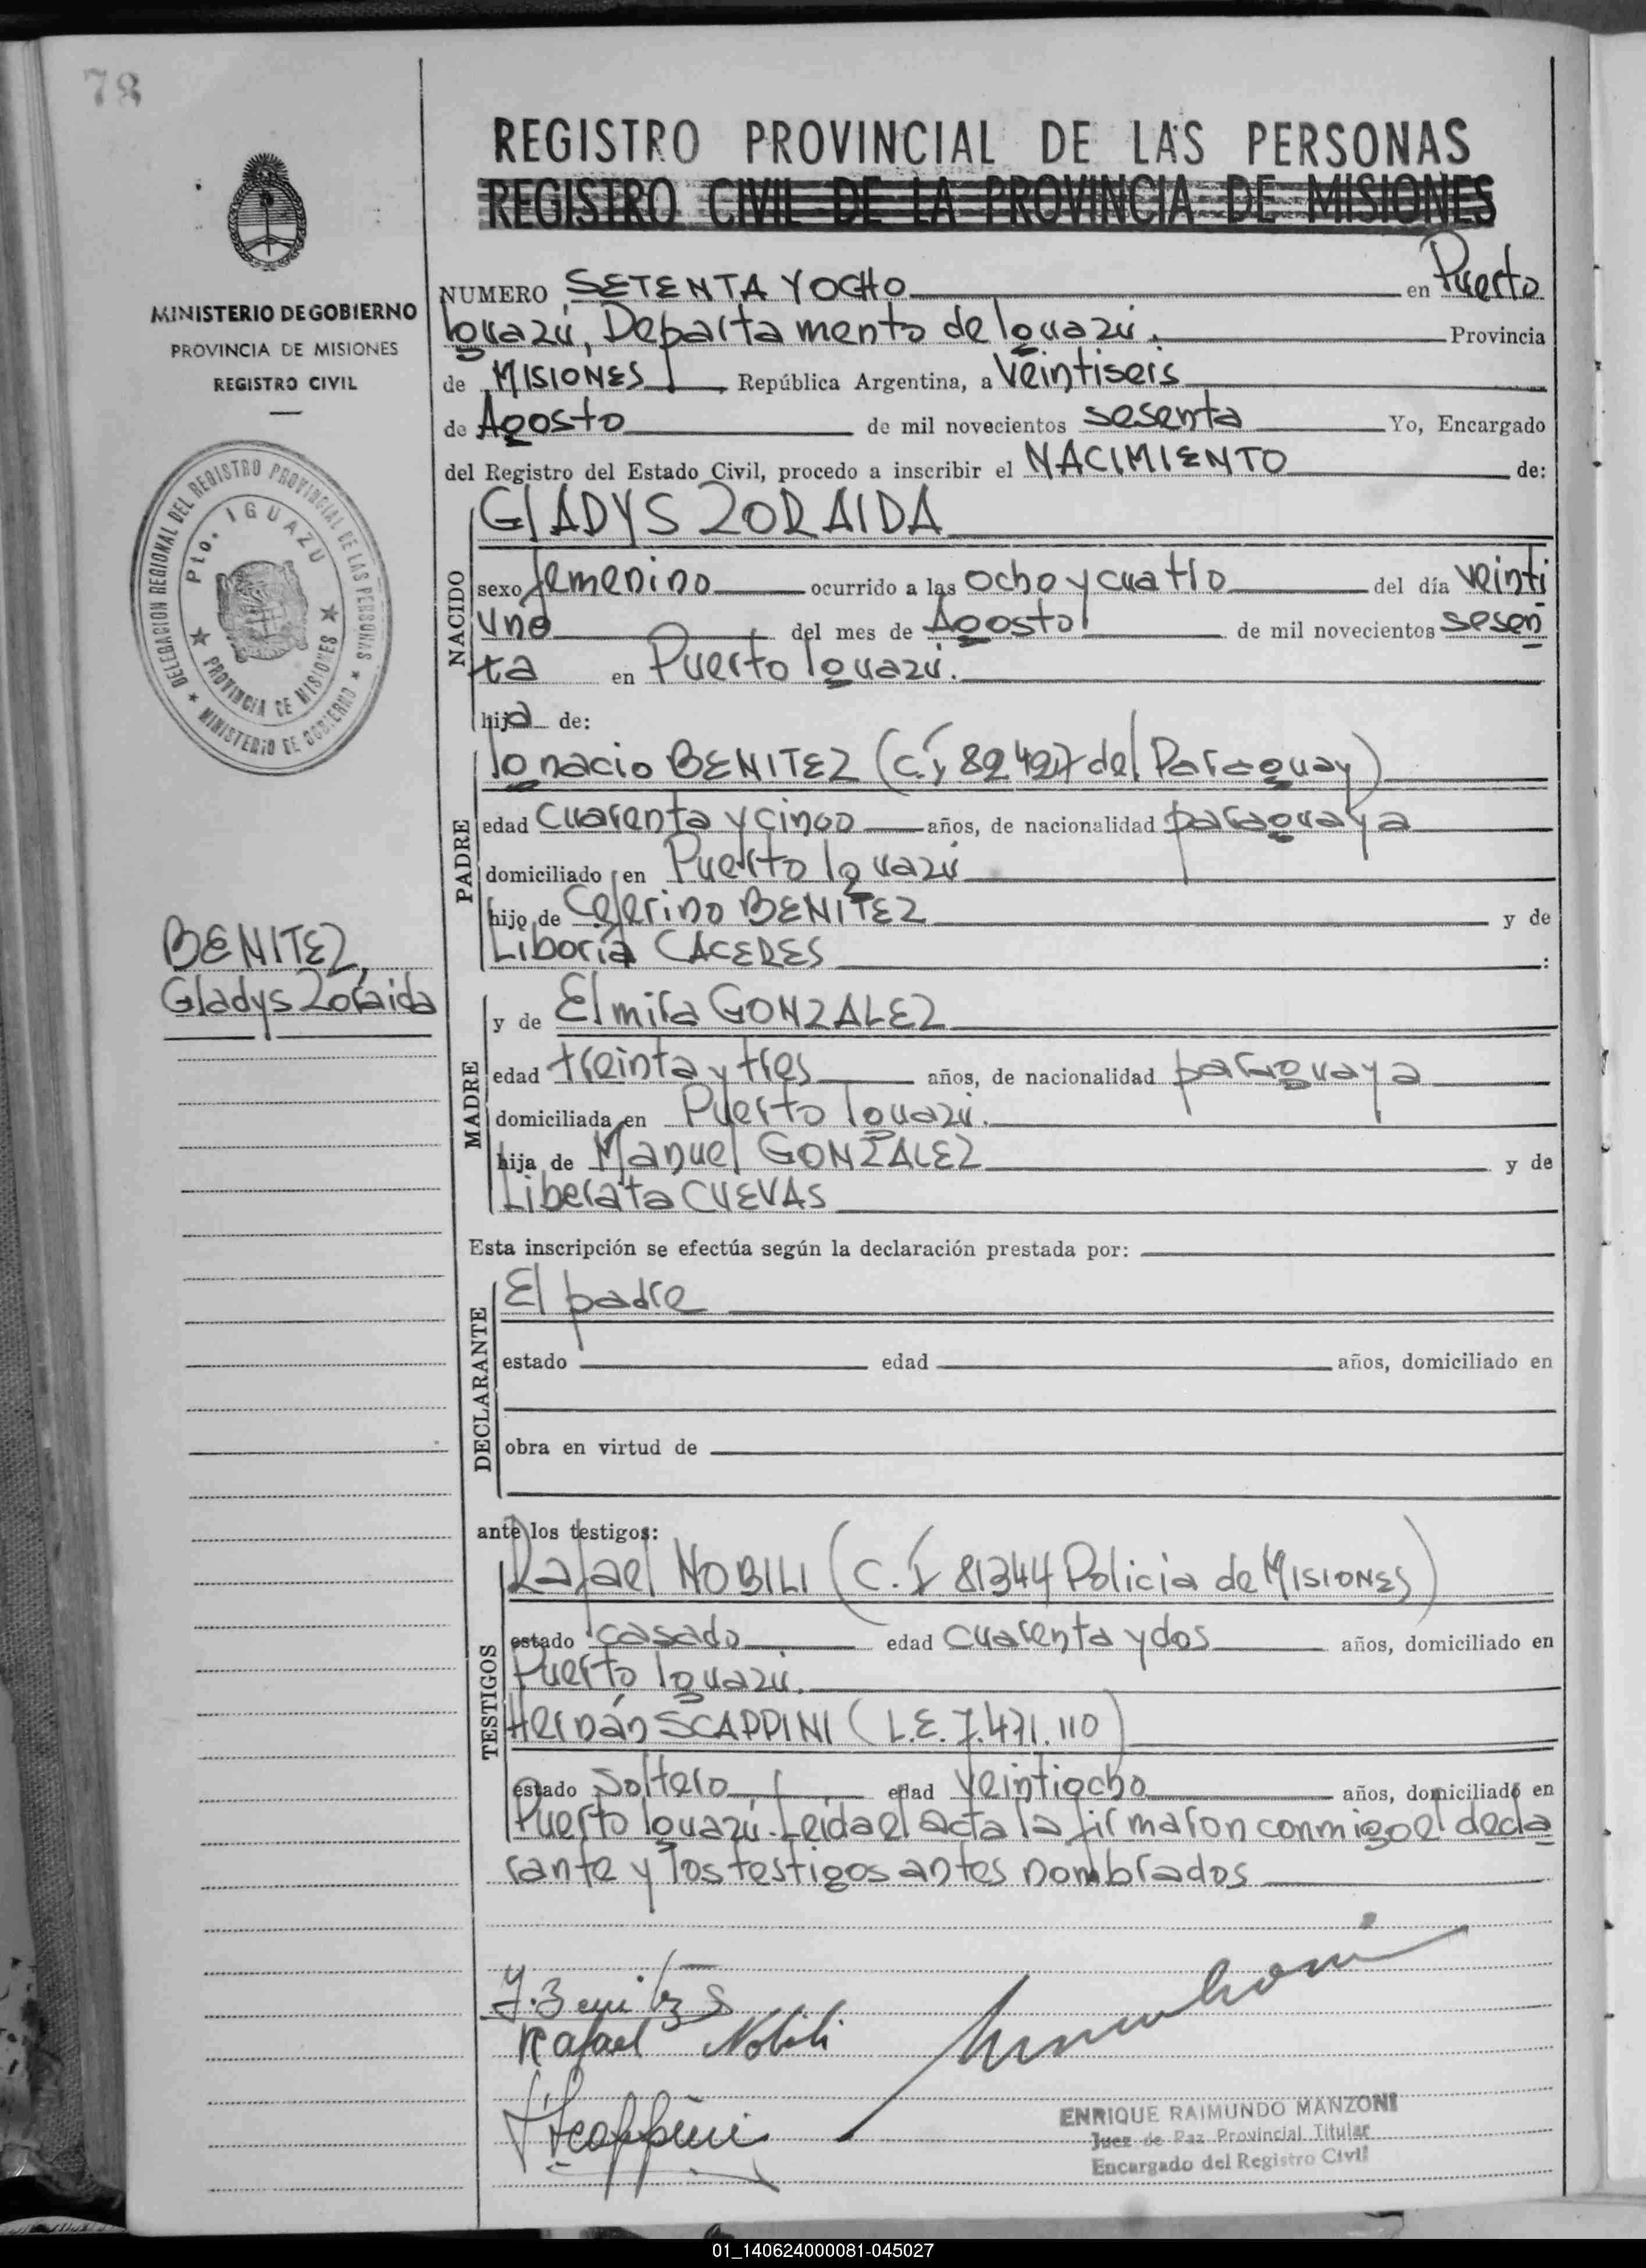 78
REGISTRO PROVINCIAL DE LAS PERSONAS
REGISTRO CIVIL DE LA PROVINCIA DE MISIONES
MINISTERIO DE GOBIERNO
PROVINCIA DE MISIONES
REGISTRO CIVIL
DELEGACION REGIONAL DEL REGISTRO PROVINCIAL DE LAS PERSONAS
★ MINISTERIO DE GOBIERNO ★
Pto. IGUAZU
★ PROVINCIA DE MISIONES ★
BENITEZ,
Gladys Zoraida
NUMERO SETENTA Y OCHO en Puerto
Iguazú, Departamento de Iguazú. Provincia
de MISIONES, República Argentina, a Veintiseis
de Agosto de mil novecientos sesenta Yo, Encargado
del Registro del Estado Civil, procedo a inscribir el NACIMIENTO de:
NACIDO
GLADYS ZORAIDA
sexo femenino ocurrido a las ocho y cuatro del día veinti
uno del mes de Agosto de mil novecientos sesen
ta en Puerto Iguazú.
hija de:
PADRE
Ignacio BENITEZ (C.I 82427 del Paraguay)
edad cuarenta y cinco años, de nacionalidad paraguaya
domiciliado en Puerto Iguazú
hijo de Ceferino BENITEZ y de
Liboria CÁCERES :
MADRE
y de Elmira GONZALEZ
edad treinta y tres años, de nacionalidad paraguaya
domiciliada en Puerto Iguazú.
hija de Manuel GONZALEZ y de
Liberata CUEVAS
Esta inscripción se efectúa según la declaración prestada por:
DECLARANTE
El padre
estado edad años, domiciliado en
obra en virtud de
ante los testigos:
TESTIGOS
Rafael NOBILI (C.I 81344 Policia de MISIONES)
estado casado edad cuarenta y dos años, domiciliado en
Puerto Iguazú.
Hernán SCAPPINI (L.E. 7.471.110)
estado Soltero edad Veintiocho años, domiciliado en
Puerto Iguazú. Leida el acta la firmaron conmigo el decla
rante y los testigos antes nombrados
J. Benitez
Rafael Nobili
HScappini
ENRIQUE RAIMUNDO MANZONI
Juez de Paz Provincial Titular
Encargado del Registro Civil
01_140624000081-045027